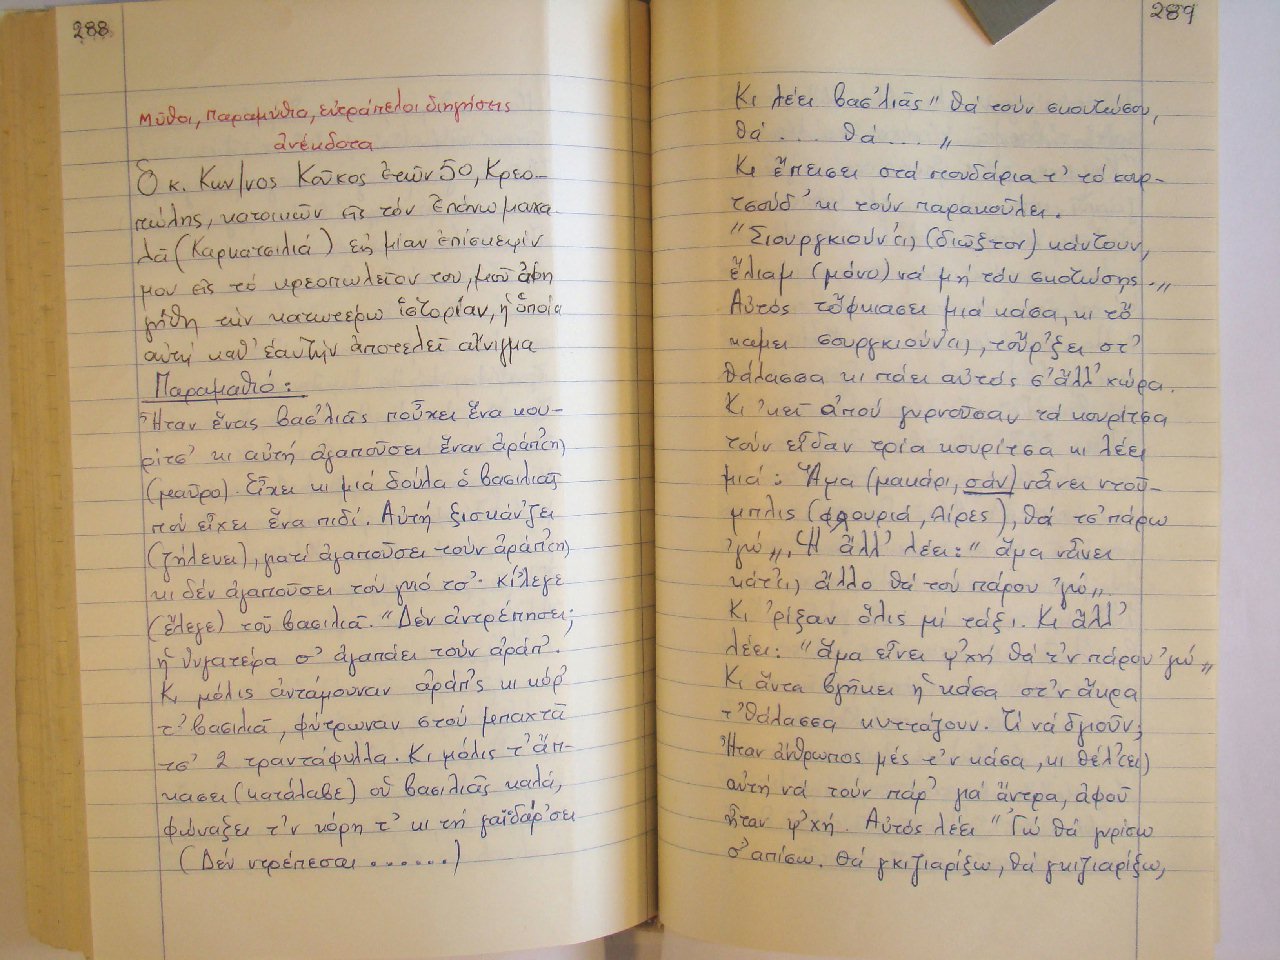 288
Μῦθοι, Παραμύθια, εὐτράπελοι διηγήσεις
ἀνέκδοτα
Ὁ κ. Κων/νος Κοῦκος ἐτῶν 50, Κρεο-
πώλης, κατοικῶν εἰς τόν ἐπάνω μαχα-
λᾶ (Καρκατσιλιά) εἰς μίαν ἐπίσκεψίν
μου εἰς τό κρεοπωλεῖον του, μοῦ ἀφη
γήθη τήν κατωτέρω ἱστορίαν, ἡ ὁποία
αὐτή καθ' ἑαυτήν ἀποτελεῖ αἴνιγμα
Παραμαθιό:
Ἦταν ἕνας βασ'λιᾶς ποὖχει ἕνα κου-
ρίτσ' κι αὐτή ἀγαποῦσει ἕναν ἀράπ'(η)
(μαῦρο). Εἶχει κι μιά δούλα ὁ βασιλιᾶς
πού εἶχει ἕνα πιδί. Αὐτή ξισκάνζει
(ζήλευει), γιατί ἀγαποῦσει τούν ἀράπ'(η)
κι δέν ἀγαποῦσει τόν γιό τσ'· κί'λεγε
(ἔλεγε) τοῦ βασιλιᾶ. "Δέν ἀντρέπησει;
ἡ θυγατέρα σ' ἀγαπάει τούν ἀράπ'.
Κι μόλις ἀντάμουναν ἀράπ'ς κι κόρ'
τ' βασιλιᾶ, φύτρωναν στού μπαχτᾶ
τσ' 2 τραντάφυλλα. Κι μόλις τ' ἄπ-
κασει (κατάλαβε) οὑ βασιλιᾶς καλά,
φώναξει τ'ν κόρη τ' κι τή γαϊδάρ'σει
(Δέν ντρέπεσαι ......)
289
Κι λέει βασ'λιᾶς "θά τούν σκοτώσου,
θά... θά... "
Κι ἔπεισει στά πουδάρια τ' τό κουρ-
τσούδ' κι τούν παρακοῦλει.
"Σιουργκιούν'(ι) (διῶξτον) κάντουν,
ἔλιαμ (μόνο) νά μή τόν σκοτώσης."
Αὐτός τὄφκιασει μιά κάσα, κι τὄ
καμει σουργκιούν'(ι), τοὔρ'ξει στ'
θάλασσα κι πάει αὐτός σ' ἄλλ' χώρα.
Κι 'κεῖ ἀπού γυρνοῦσαν τά κουρίτσα
τούν εἶδαν τρία κουρίτσα κι λέει
μιά: Ἅμα (μακάρι, σάν) νἆνει ντοῦ-
μπλις (φλουριά, λίρες), θά τσ' πάρω
'γώ". Ἡ ἄλλ' λέει: "ἅμα νἆνει
κάτ'(ι) ἄλλο θά τού πάρου 'γώ".
Κι 'ρίξαν ὅλις μί τάξι. Κι ἄλλ'
λέει: "ἅμα εἶνει ψ'χή θά τ'ν πάρου 'γώ"
Κι ἄντα βγῆκει ἡ κάσα στ'ν ἄκρα
τ' θάλασσα κυττάζουν. Τί νά δγιοῦν;
Ἦταν ἄνθρωπος μές τ'ν κάσα, κι θέλ'(ει)
αὐτή νά τούν πάρ' γιά ἄντρα, ἀφοῦ
ἦταν ψ'χή. Αὐτός λέει "Γώ θά γυρίσω
σ' απίσω. Θά γκιζιαρίξω, θά γκιζιαρίξω,